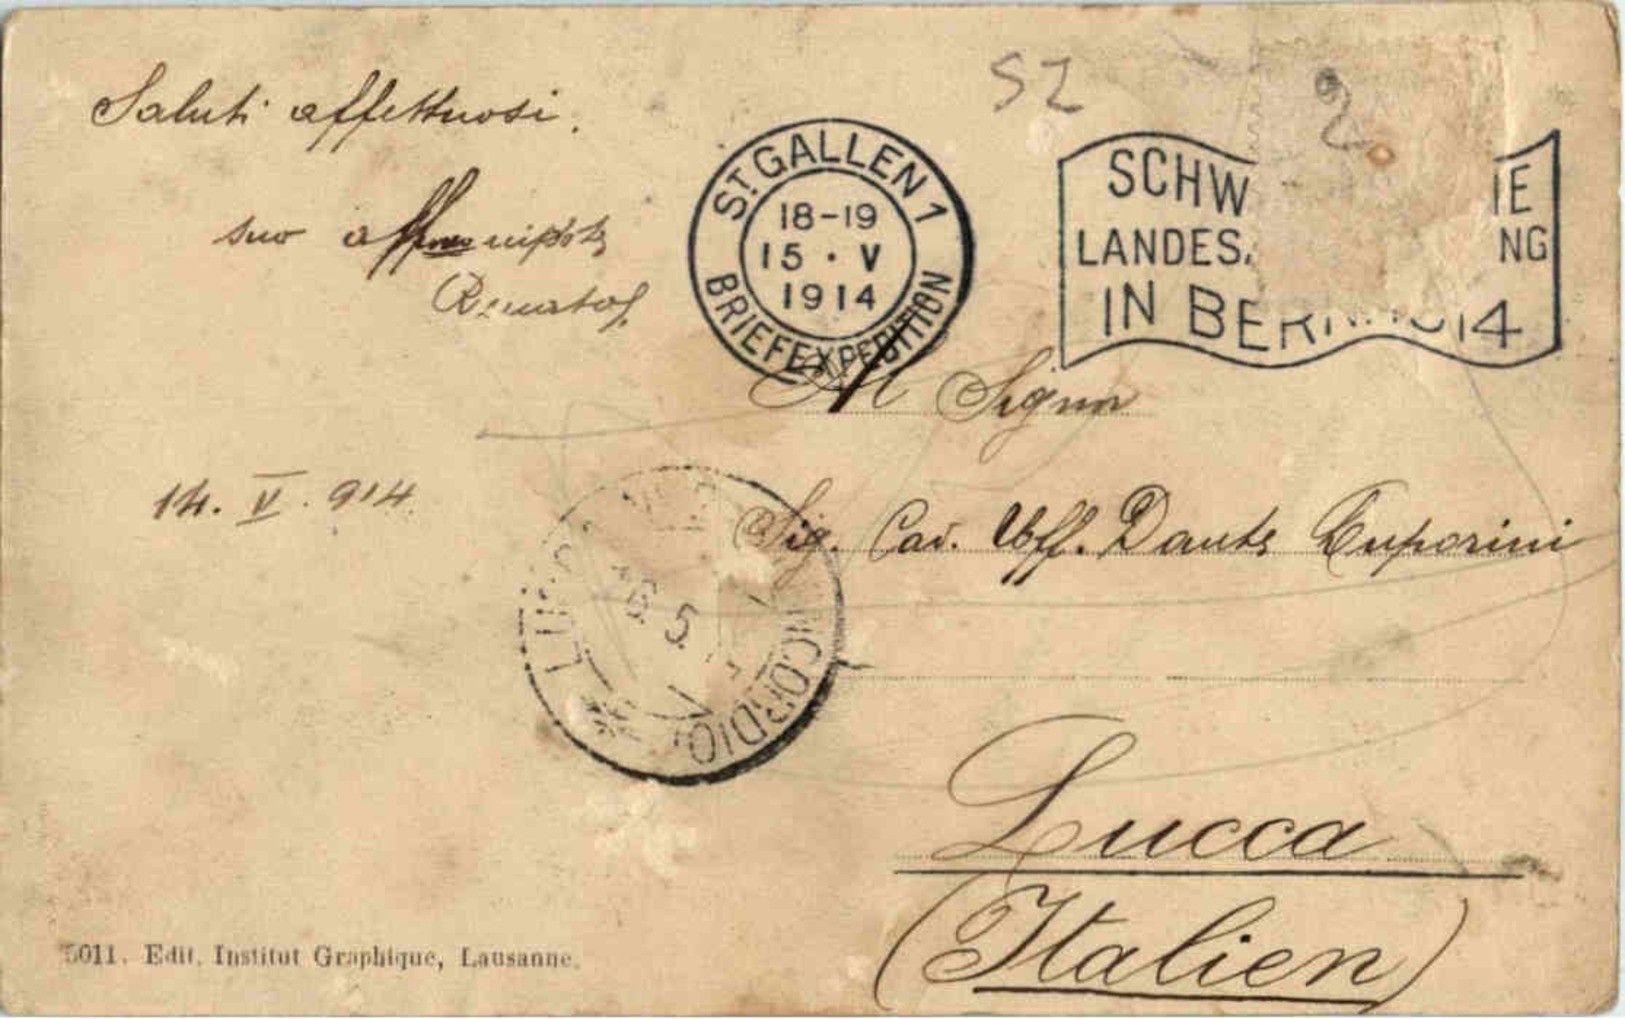 Saluti affettuosi.
suo aff nipote
Renato
14. V. 914.
SZ
2
ST. GALLEN 1
18-19
15 · V
1914
BRIEFEXPEDITION
SCHW IE
LANDES. NG
IN BERN 1914
Al Signor
Sig. Cav. Uff. Dante Luporini
Lucca
(Italien)
5
5011. Edit. Institut Graphique, Lausanne.